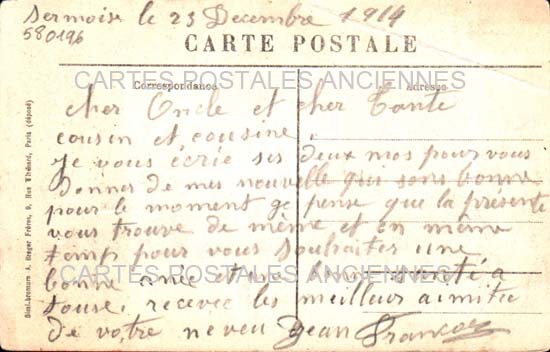 Sermoise le 23 Decembre 1914
580196
CARTE POSTALE
CARTES POSTALES ANCIENNES
Correspondance Adresse
cher Oncle et cher Tante
cousin et cousine
je vous écrie ses deux mos pour vous
donner de mes nouvelle qui sons bonne
pour le moment ge pense que la présente
vous trouve de même et en même
temp pour vous souhaiter une
bonne anée et une bonne santé a
touse, recevec les meilleur amitie
de votre neveu Jean Francois
CARTES POSTALES ANCIENNES
Simi-bromure A. Breger Frères, 9, Rue Thénard, Paris (déposé)